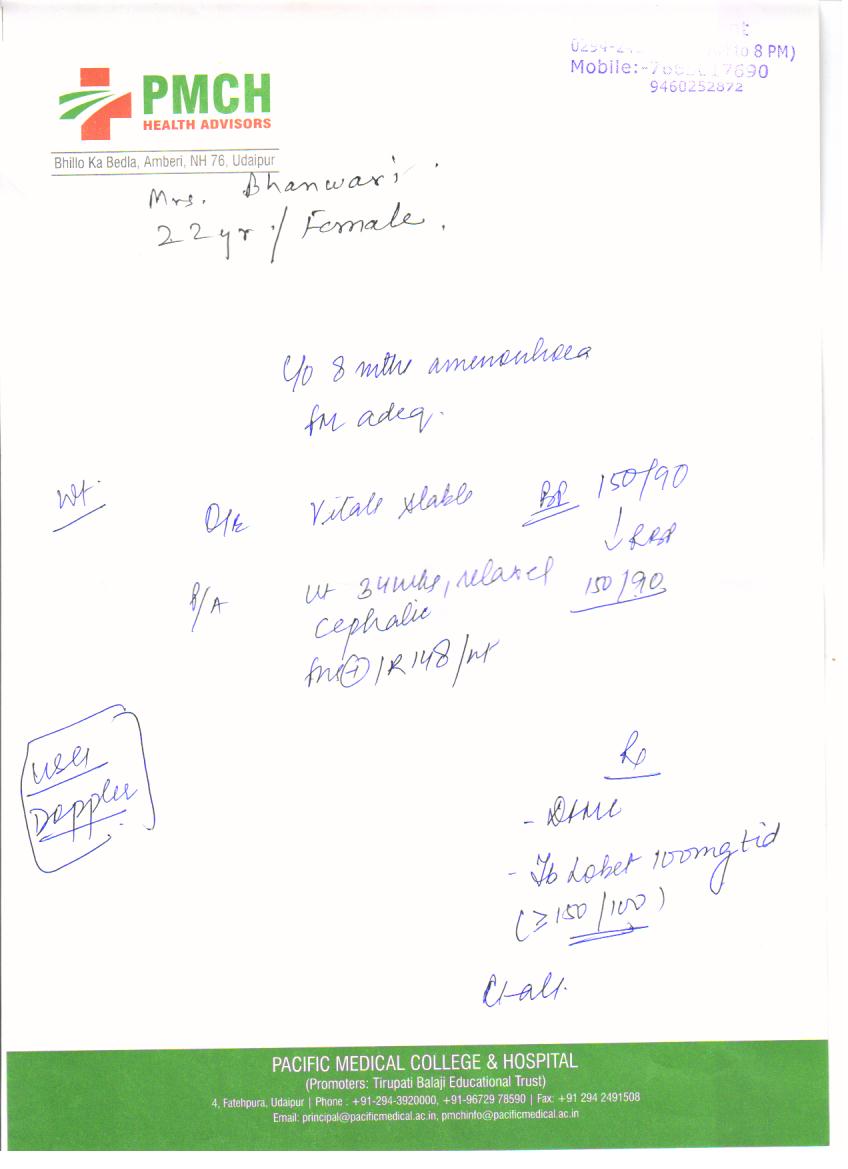 to 8 PM)
Mobile:-
9460252872
PMCH
HEALTH ADVISORS
Bhillo Ka Bedla, Amberi, NH 76, Udaipur
Mrs. Bhanwari.
22 yr / Female.
C/o 8 mths amenorrhoea
FM adeq.
Wt.
O/E Vitals stable BP 150/90
150/90
P/A Ut 34 wks, relaxed
Cephalic
FHS + /R 148/mt
USG
Doppler
Rx
- Tb Lobet 100mg tid
(≥150/100)
PACIFIC MEDICAL COLLEGE & HOSPITAL
(Promoters: Tirupati Balaji Educational Trust)
4, Fatehpura, Udaipur | Phone : +91-294-3920000, +91-96729 78590 | Fax: +91 294 2491508
Email: principal@pacificmedical.ac.in, pmchinfo@pacificmedical.ac.in